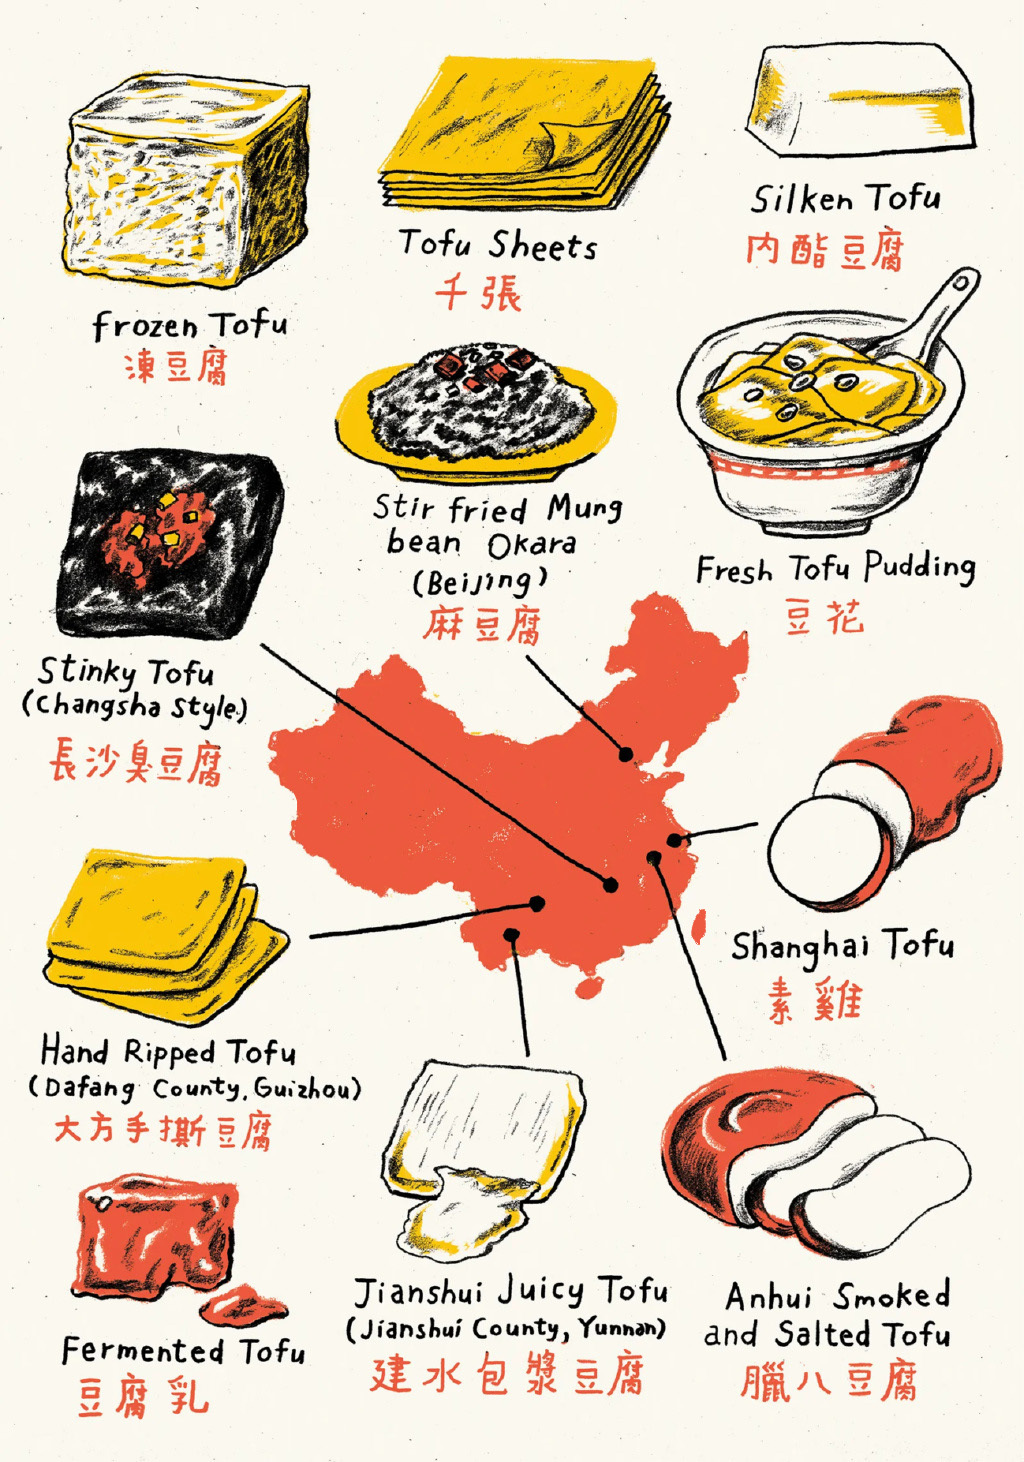 Frozen Tofu
凍豆腐
Tofu Sheets
千張
Silken Tofu
内酯豆腐
Stir fried Mung
bean Okara
(Beijing)
麻豆腐
Fresh Tofu Pudding
豆花
Stinky Tofu
(Changsha Style)
長沙臭豆腐
Shanghai Tofu
素雞
Hand Ripped Tofu
(Dafang County, Guizhou)
大方手撕豆腐
Jianshui Juicy Tofu
(Jianshui County, Yunnan)
建水包漿豆腐
Anhui Smoked
and Salted Tofu
臘八豆腐
Fermented Tofu
豆腐乳